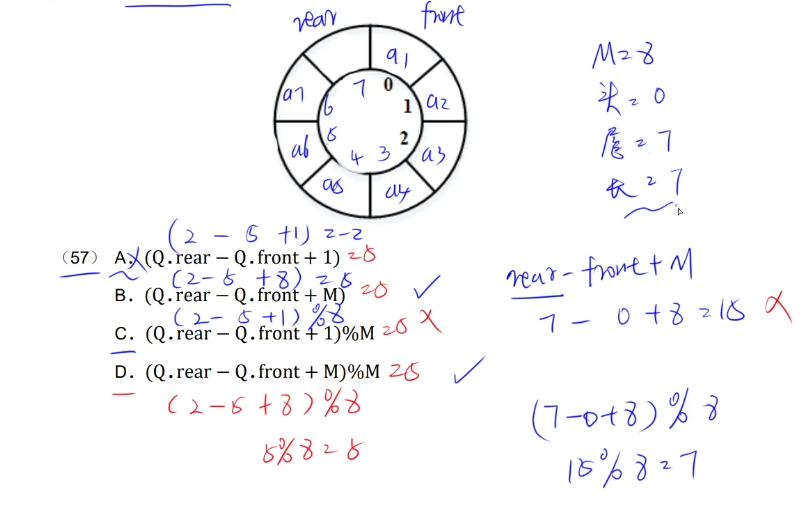 rear front
a1
a7 7 0 a2
6 1
a6 5 2 a3
4 3
a5 a4
M=8
头=0
尾=7
长=7
(2-5+1)=-2
(57) A. (Q.rear − Q.front + 1) =5
(2-5+8)=5
B. (Q.rear − Q.front + M) =5 ✓
(2-5+1)%8
C. (Q.rear − Q.front + 1)%M =5 ×
D. (Q.rear − Q.front + M)%M =5 ✓
(2-5+8)%8
5%8=5
rear-front+M
7-0+8=15 ×
(7-0+8)%8
15%8=7